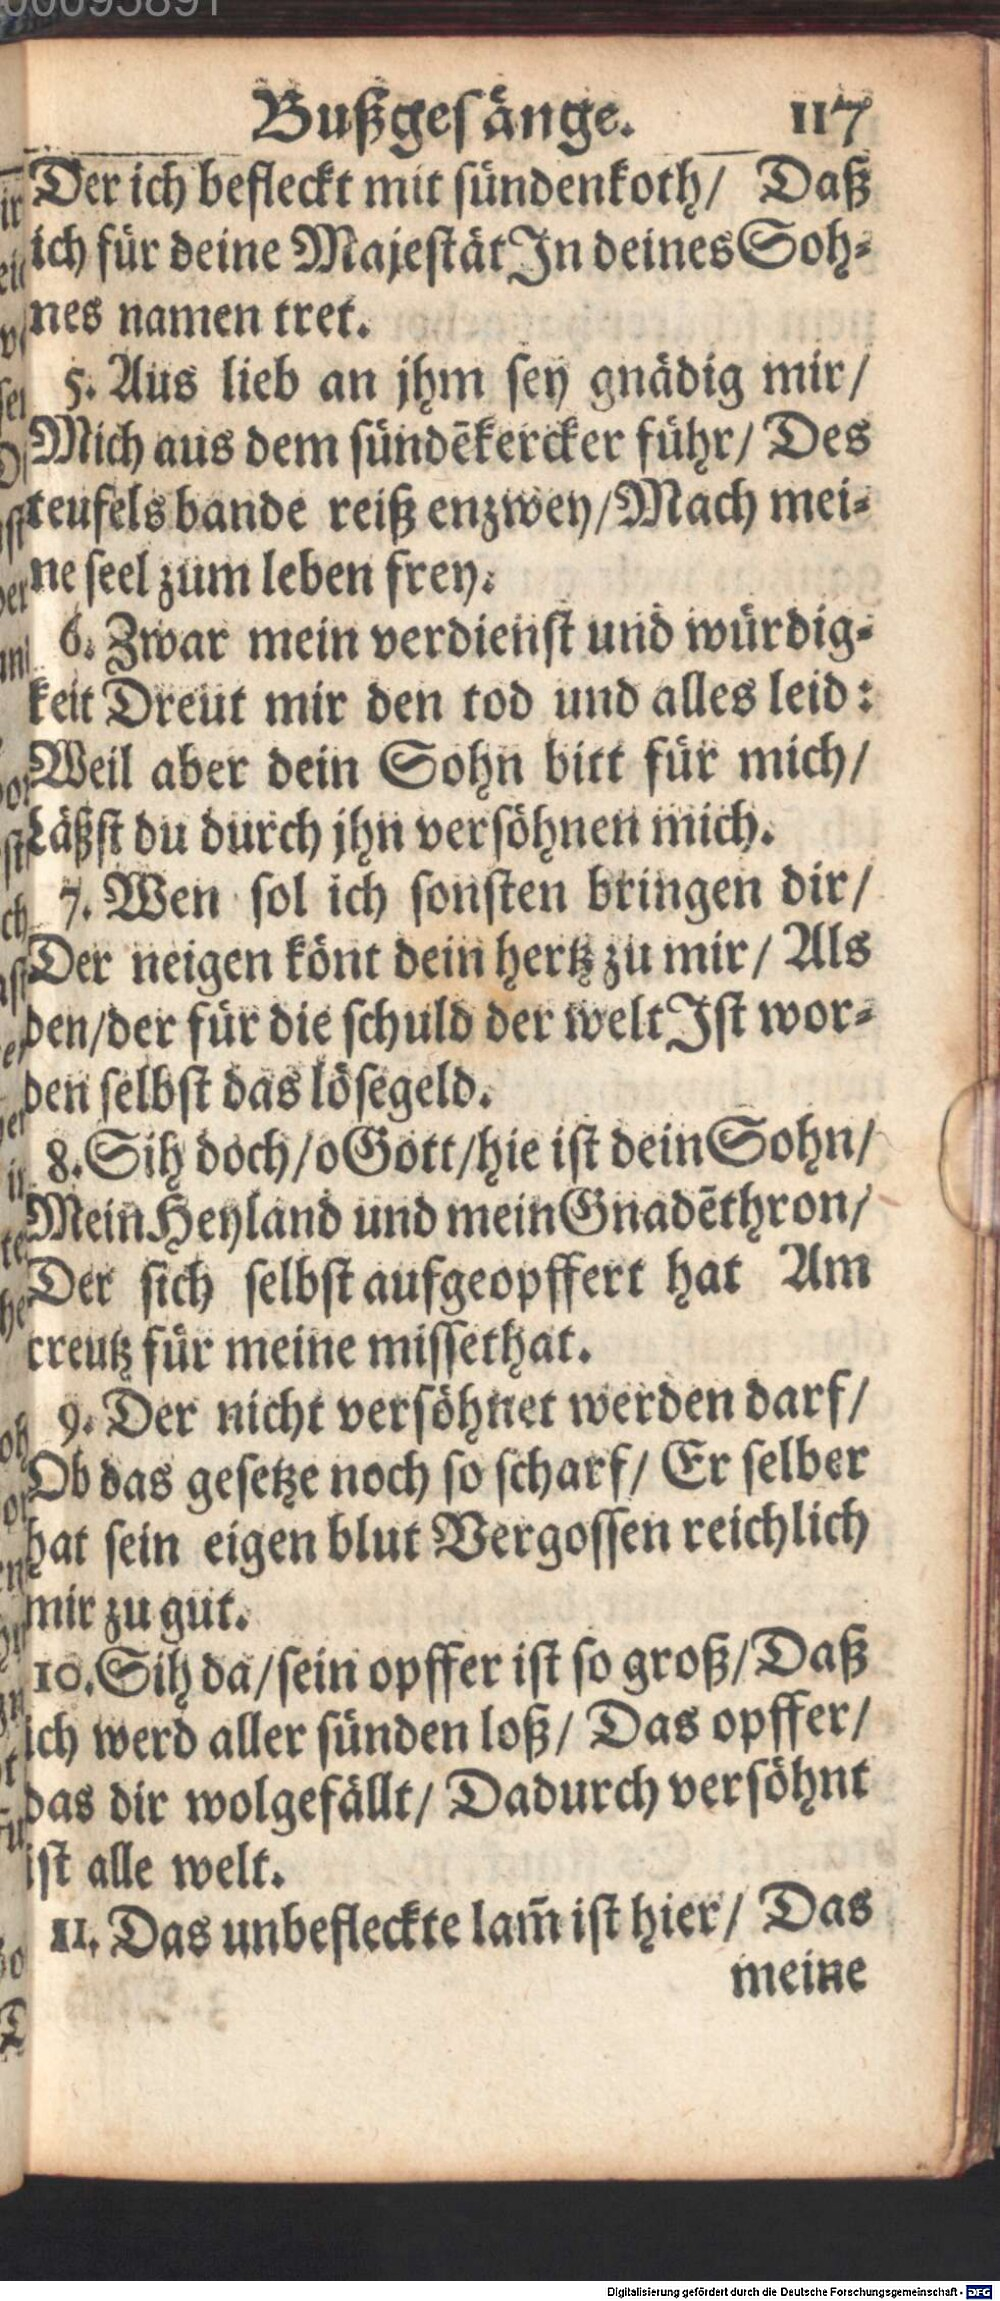 Bußgesänge. 117
Der ich befleckt mit sündenkoth/ Daß
ich für deine Majestät In deines Soh-
nes namen tret.
5. Aus lieb an jhm sey gnädig mir/
Mich aus dem sündẽkercker führ/ Des
teufels bande reiß enzwey/ Mach mei-
ne seel zum leben frey.
6. Zwar mein verdienst und würdig-
keit Dreut mir den tod und alles leid:
Weil aber dein Sohn bitt für mich/
Läßst du durch jhn versöhnen mich.
7. Wen sol ich sonsten bringen dir/
Der neigen könt dein hertz zu mir/ Als
den/ der für die schuld der welt Ist wor-
den selbst das lösegeld.
8. Sih doch/ o Gott/ hie ist dein Sohn/
Mein Heyland und mein Gnadẽthron/
Der sich selbst aufgeopffert hat Am
creutz für meine missethat.
9. Der nicht versöhnet werden darf/
Ob das gesetze noch so scharf/ Er selber
hat sein eigen blut Vergossen reichlich
mir zu gut.
10. Sih da/ sein opffer ist so groß/ Daß
ich werd aller sünden loß/ Das opffer/
das dir wolgefällt/ Dadurch versöhnt
ist alle welt.
11. Das unbefleckte lam̃ ist hier/ Das
meine
Digitalisierung gefördert durch die Deutsche Forschungsgemeinschaft - DFG